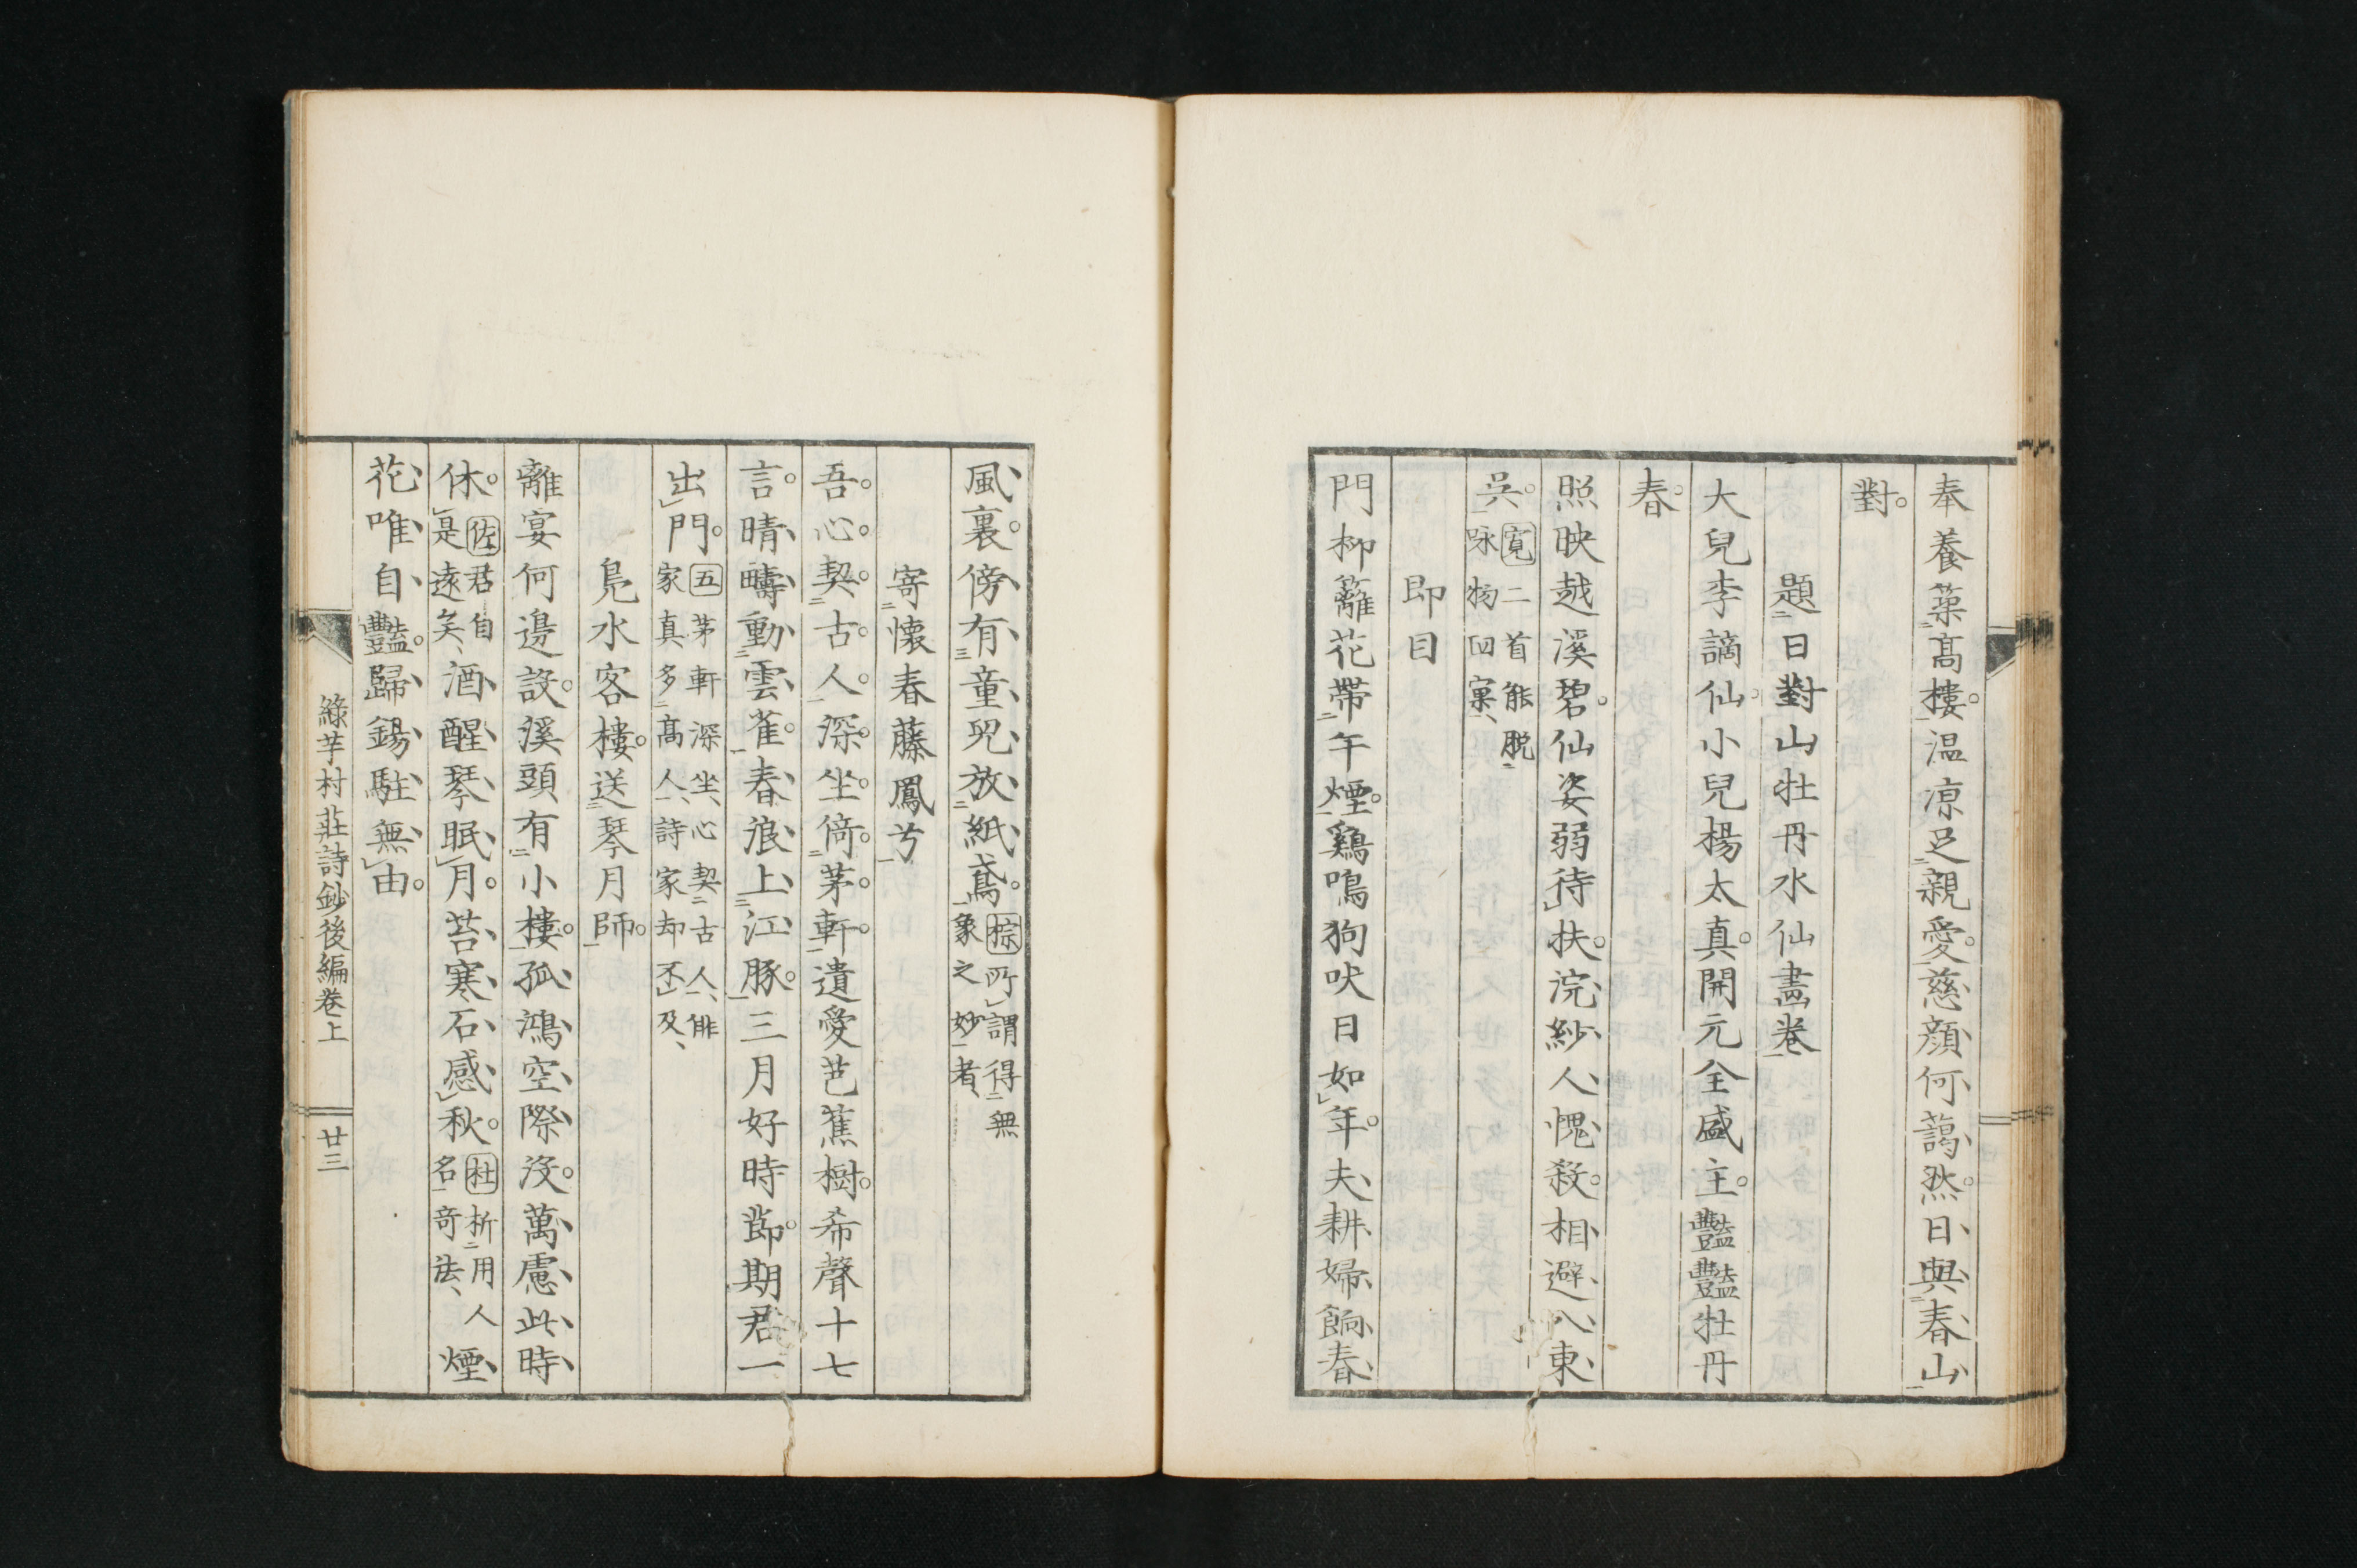 奉養築高樓温凉足親愛慈顔何藹然日與春山
對
題日對山牡丹水仙畫卷
大兒李謫仙小兒楊太真開元全盛主豔豔牡丹
春
照映越溪碧仙姿弱待扶浣紗人愧殺相避入東
吳
寛二首能脱
咏物凹窠
即目
門柳籬花帶午煙鷄鳴狗吠日如年夫耕婦餉春
風裏傍有童兒放紙鳶
棕所謂得無
象之妙者
寄懷春藤鳳兮
吾心契古人深坐倚茅軒遺愛芭蕉樹希聲十七
言晴疇動雲雀春浪上江豚三月好時節期君一
出門
五茅軒深坐心契古人俳
家真多高人詩家却不及
凫水客樓送琴月師
離宴何邊設溪頭有小樓孤鴻空際沒萬慮此時
休
佐君自
是遠矣
酒醒琴眠月苔寒石感秋
杜析用人
名奇法
煙
花唯自豔歸錫駐無由
綠芋村莊詩鈔後編卷上
廿三